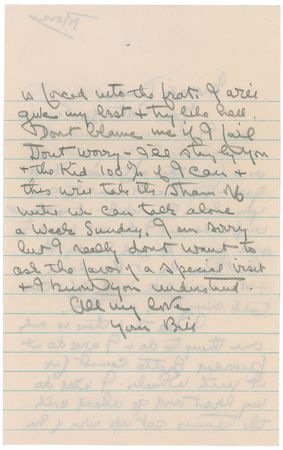 is forced into the frat. I will
give my best + try like hell.
Dont blame me if I fail
Dont worry - I'll stay by you
+ the Kid 100% if I can +
this will take the strain off
until we can talk alone
a week Sunday. I am sorry
but I really dont want to
ask the favor of a special visit
+ I know you understand
All my love
Your Bill